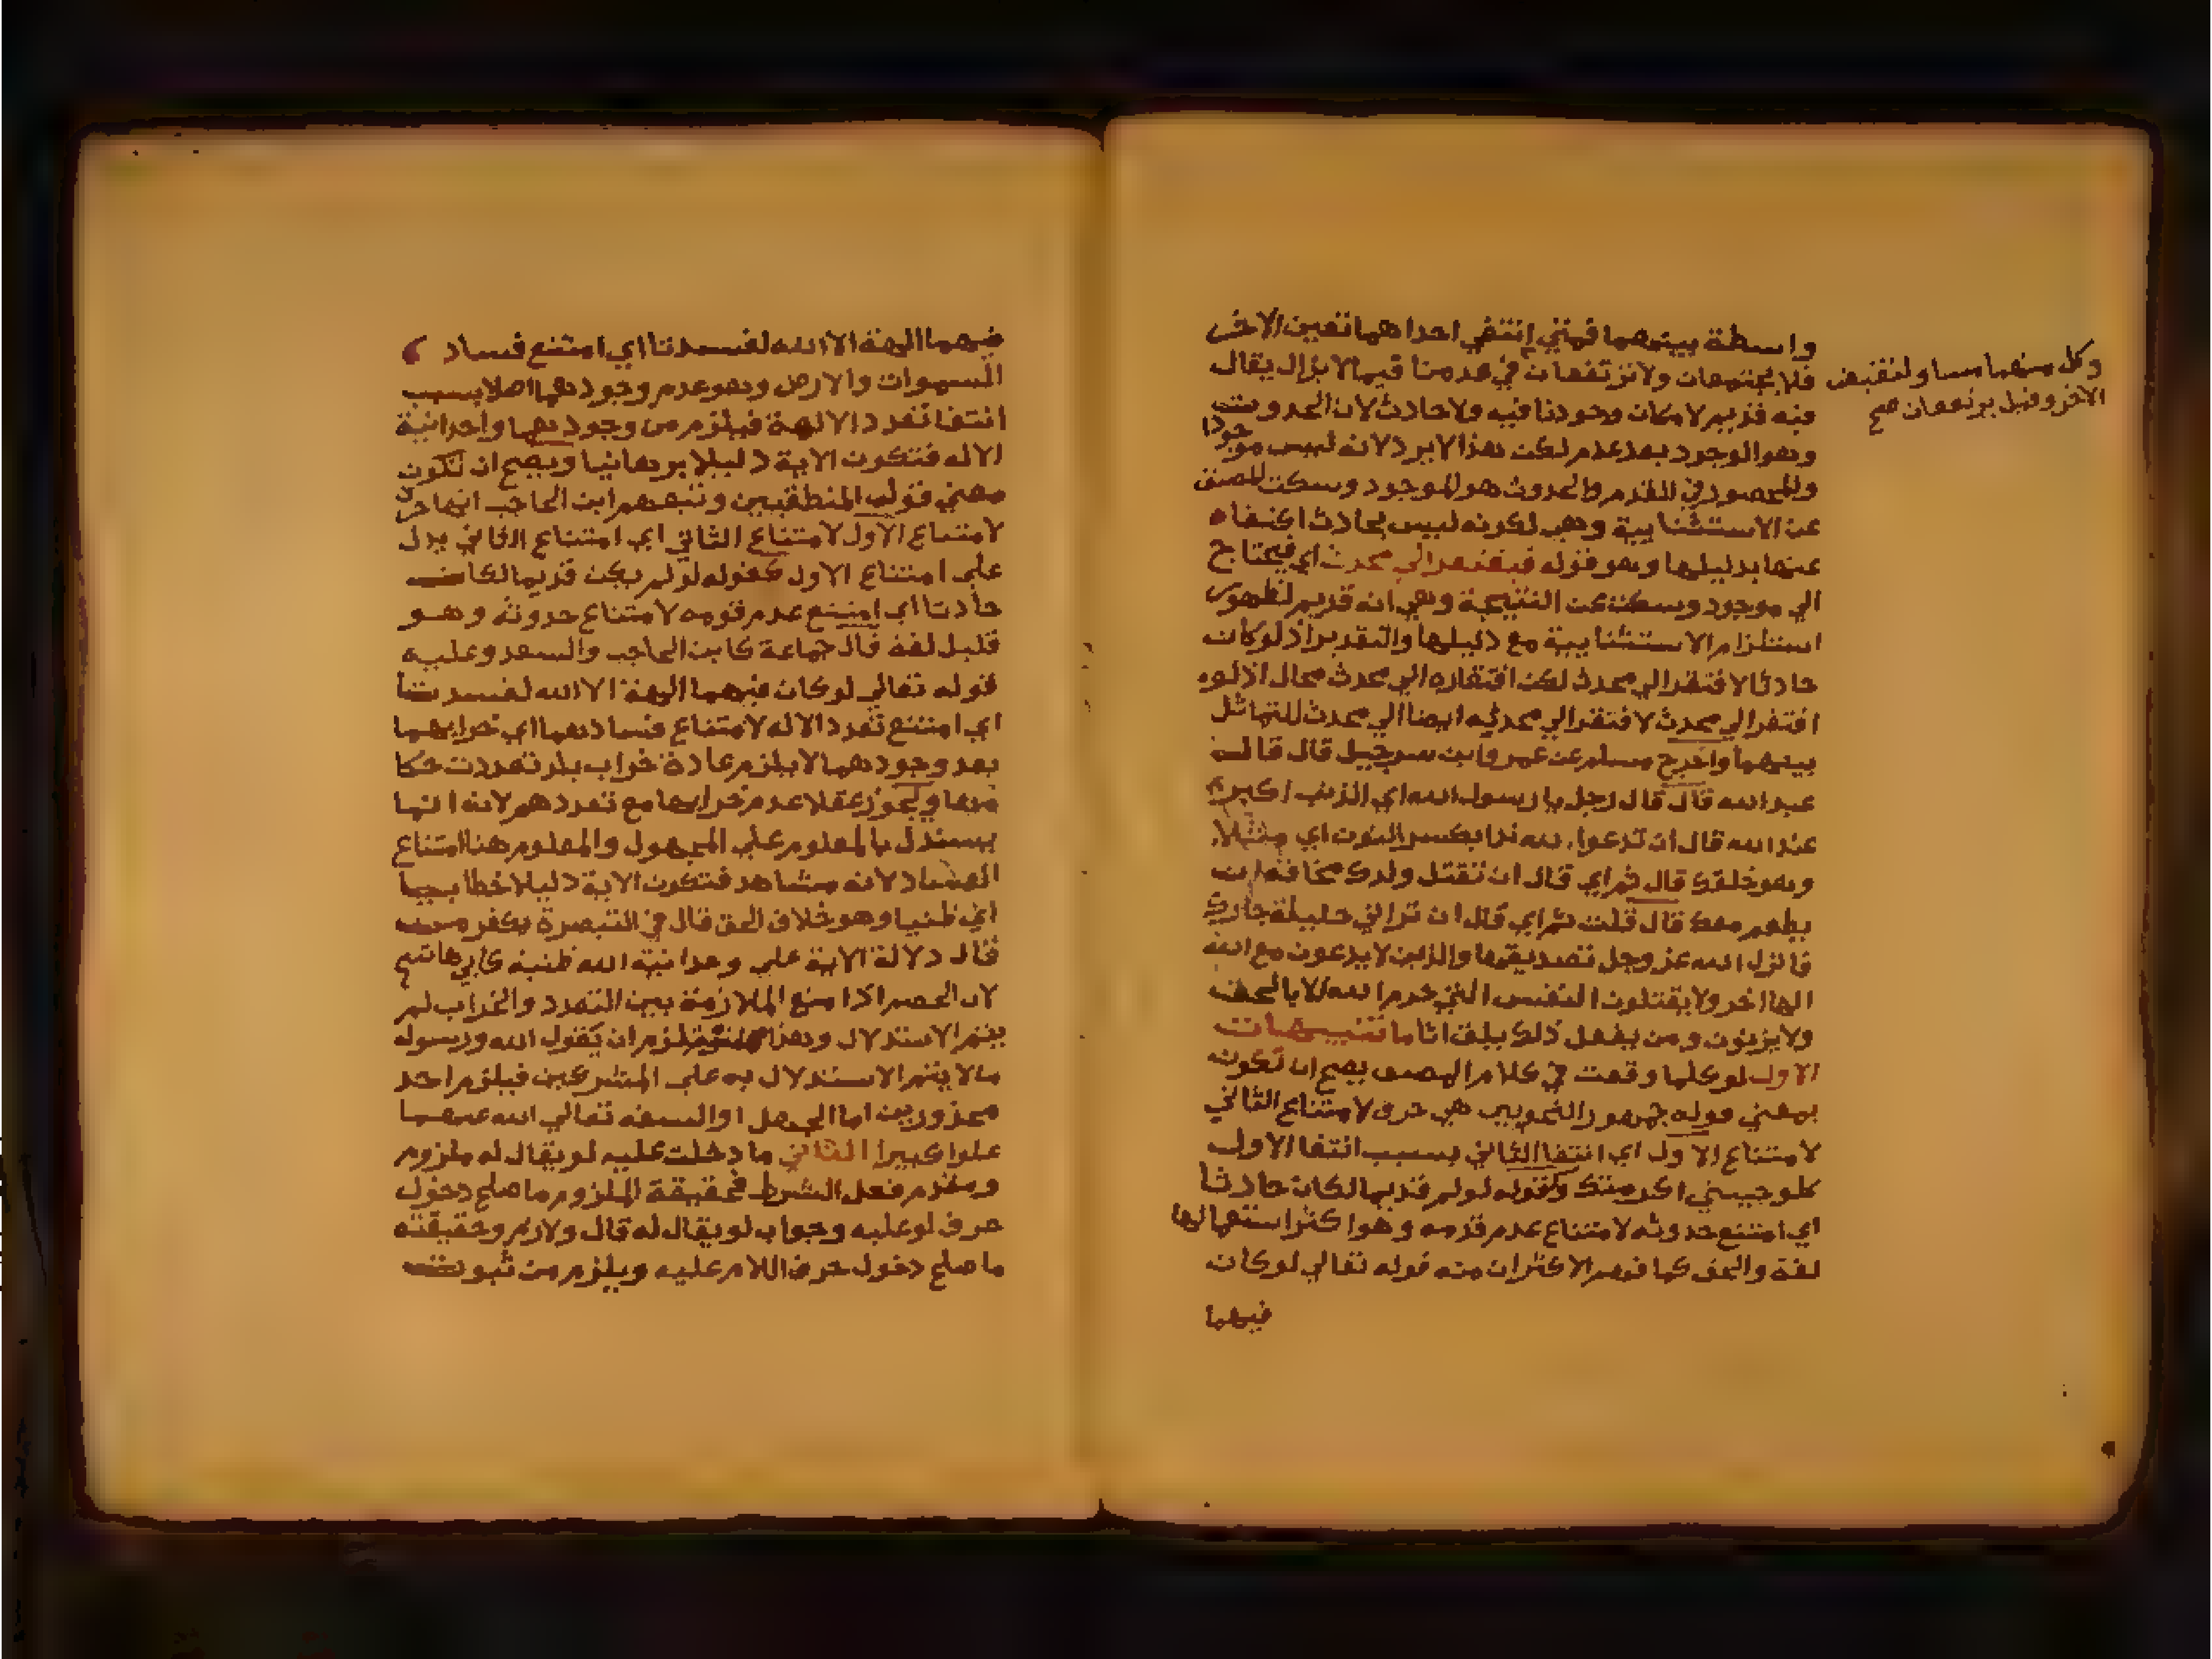 واسطة بينهما فمتي انتفي احداهما تعين الاخر
فلا يجتمعان ولا يرتفعان في عدمنا فيما لا يزال يقال
فيه قديم لا مكان وجودنا فيه ولا حادث لان الحدوث
وهو الوجود بعد عدم لكن هذا لا يرد لانه ليس موجودا
والمحصور في القدم والحدوث هو الموجود وسكت المصنف
عن الاستثنايية وهي لكونه ليس بحادث اكتفاء
عنها بدليلها وهو قوله فيفتقر الي محدث اي فيحتاج
الي موجود وسكت عن النتيجة وهي انه قديم لظهور
استلزام الاستثنايية مع دليلها والتقدير اذ لو كان
حادثا لافتقر الي محدث لكن افتقاره الي محدث محال اذ لو
افتقر الي محدث لافتقر الي محدثه ايضا الي محدث للتماثل
بينهما واخرج مسلم عن عمرو ابن سرحبيل قال قال
عبد الله قال قال رجل يا رسول الله اي الذنب اكبر
عند الله قال ان تدعوا لله ندا بكسر النون اي مثلا
وهو خلقك قال ثم اي قال ان تقتل ولدك مخافة ان
يطعم معك قال قلت ثم اي قال ان تزاني حليلة جارك
فانزل الله عز وجل تصديقها والذين لا يدعون مع الله
الها اخر ولا يقتلون النفس التي حرم الله الا بالحق
ولا يزنون ومن يفعل ذلك يلق اثاما تنبيهات
الاول لو كلما وقعت في كلام المصنف يصح ان تكون
بمعني قوله جمهور النحويين هي حرف لامتناع الثاني
لامتناع الاول اي انتفا الثاني بسبب انتفا الاول
كلو جيتني اكرمتك وكقوله لو لم قديما لكان حادثا
اي امتنع حدوثه لامتناع عدم قدمه وهو اكثر استعمالها
لغة والحق كما فهم الاكثران منه قوله تعالي لو كان
فيهما
وكل منهما مساو لنقيض
الاخر وقيل يرتفعان صح
فيهما الهة الا الله لفسدتا اي امتنع فساد
السموات والارض وهو عدم وجودهما اصلا بسبب
انتفا تعدد الالهة فيلزم من وجودهما واحدانية
الاله فتكون الاية دليلا برهانيا ويصح ان تكون
معني قوله المنطقيين وتبعهم ابن الحاجب انها حرف
لامتناع الاول لامتناع الثاني اي امتناع الثاني يدل
علي امتناع الاول كقوله لو لم يكن قديما لكان
حادثا اي امتنع عدم قومه لامتناع حدوثه وهو
قليل لغة قال جماعة كابن الحاجب والسعد وعليه
قوله تعالي لو كان فيهما الهة الا الله لفسدتا
اي امتنع تعدد الاله لامتناع فسادهما اي خرابهما
بعد وجودهما لا يلزم عادة خراب بلد تعددت حكا
مها ويجوز عقلا عدم خرابها مع تعددهم لانه انما
يستدل بالمعلوم علي المجهول والمعلوم هنا امتناع
الفساد لانه مشاهد فتكون الاية دليلا خطابيا
اي ظنيا وهو خلاف الحق قال في التبصرة بكفر من
قال دلالة الاية علي وحدانية الله ظنية كابي هاشم
لان الخصم اذا منع الملازمة بين التعدد والخراب لم
يتم الاستدلال وهذا يلزم ان يقول الله ورسوله
ما لا يتم الاستدلال به علي المشركين فيلزم احد
محذورين اما الجهل او السفه تعالي الله عنهما
علوا كبيرا الثاني ما دخلت عليه لو يقال له ملزوم
ومقدم فعل الشرط فحقيقة الملزوم ما صلح دخول
حرف لو عليه وجواب لو يقال له قال ولازم وحقيقته
ما صلح دخول حرف اللام عليه ويلزم من ثبوت